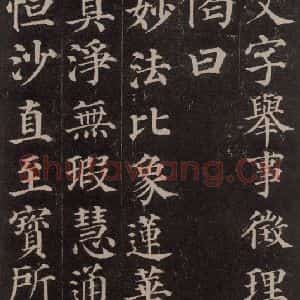 文字舉事徵理
曰
妙法比象蓮華
真淨無瑕慧通
恒沙直至寶所